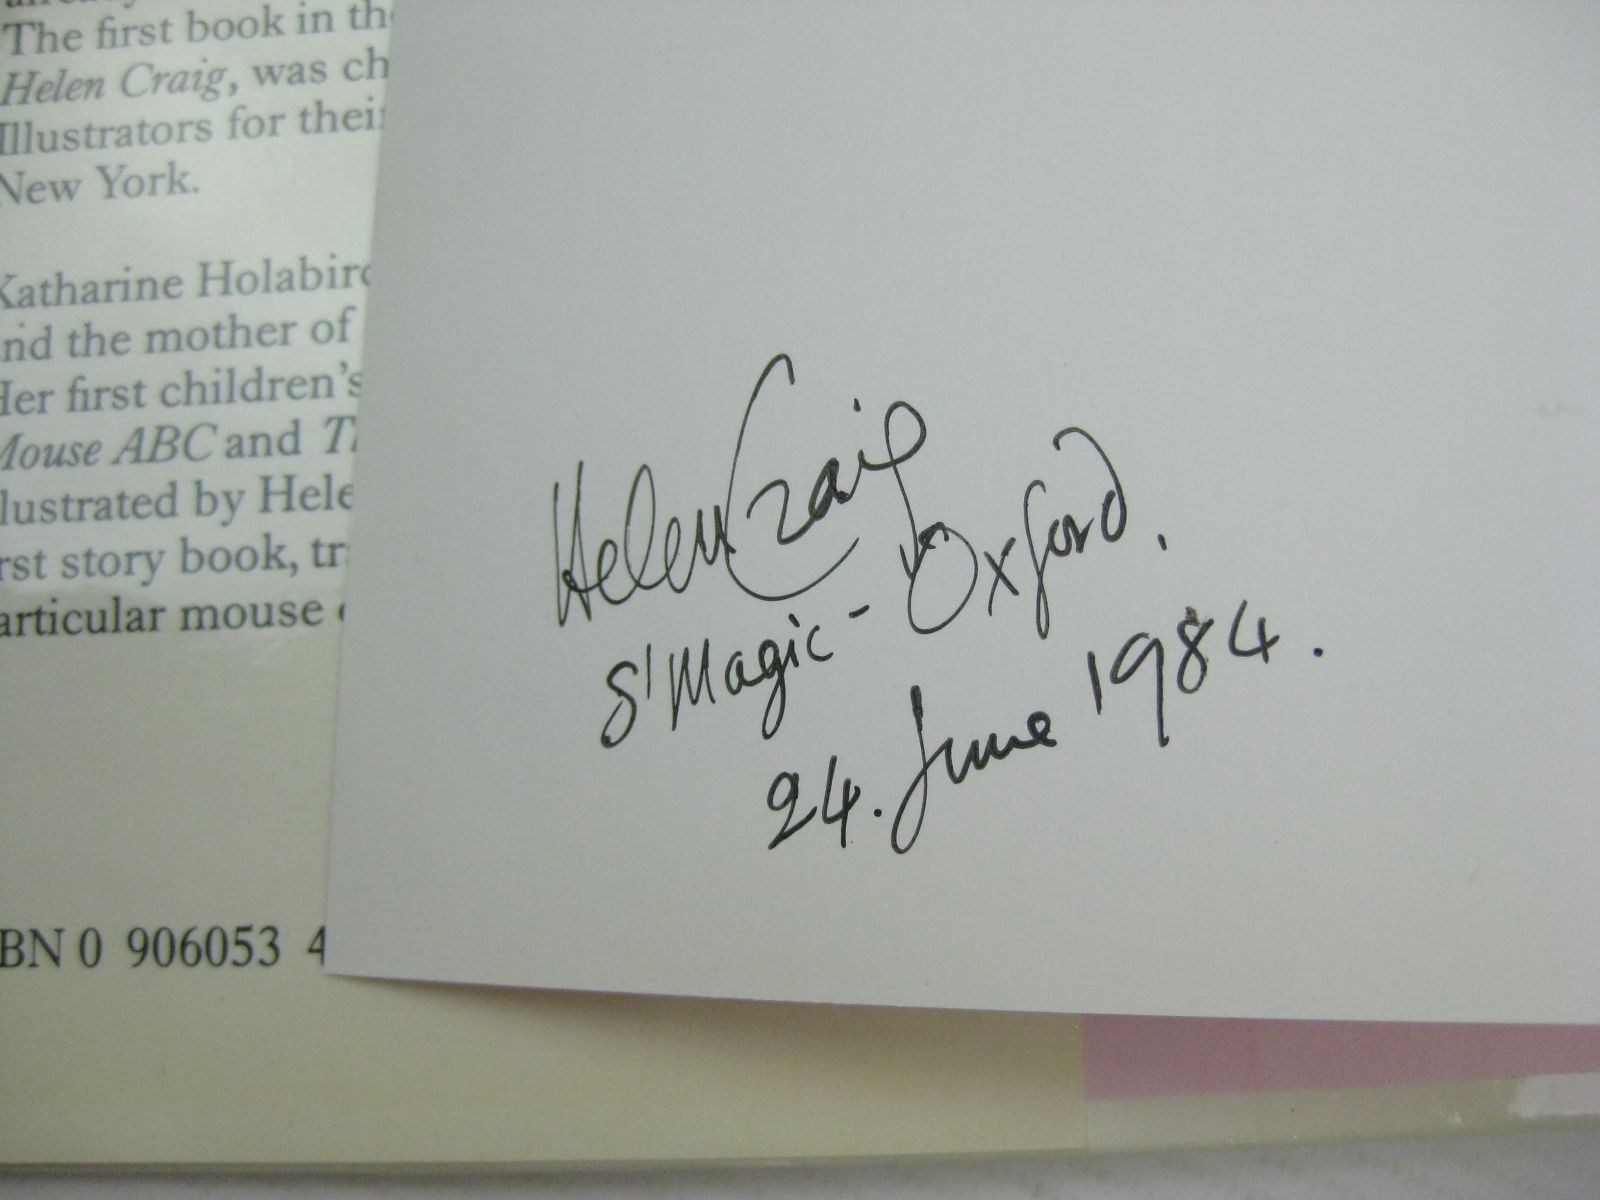 The first book in th
Helen Craig, was ch
Illustrators for their
New York.
Katharine Holabird
and the mother of
Her first children's
Mouse ABC and T
illustrated by Hele
rst story book, tr
articular mouse
BN 0 906053 4
Helen Craig
S' Magic - Oxford.
24. June 1984.